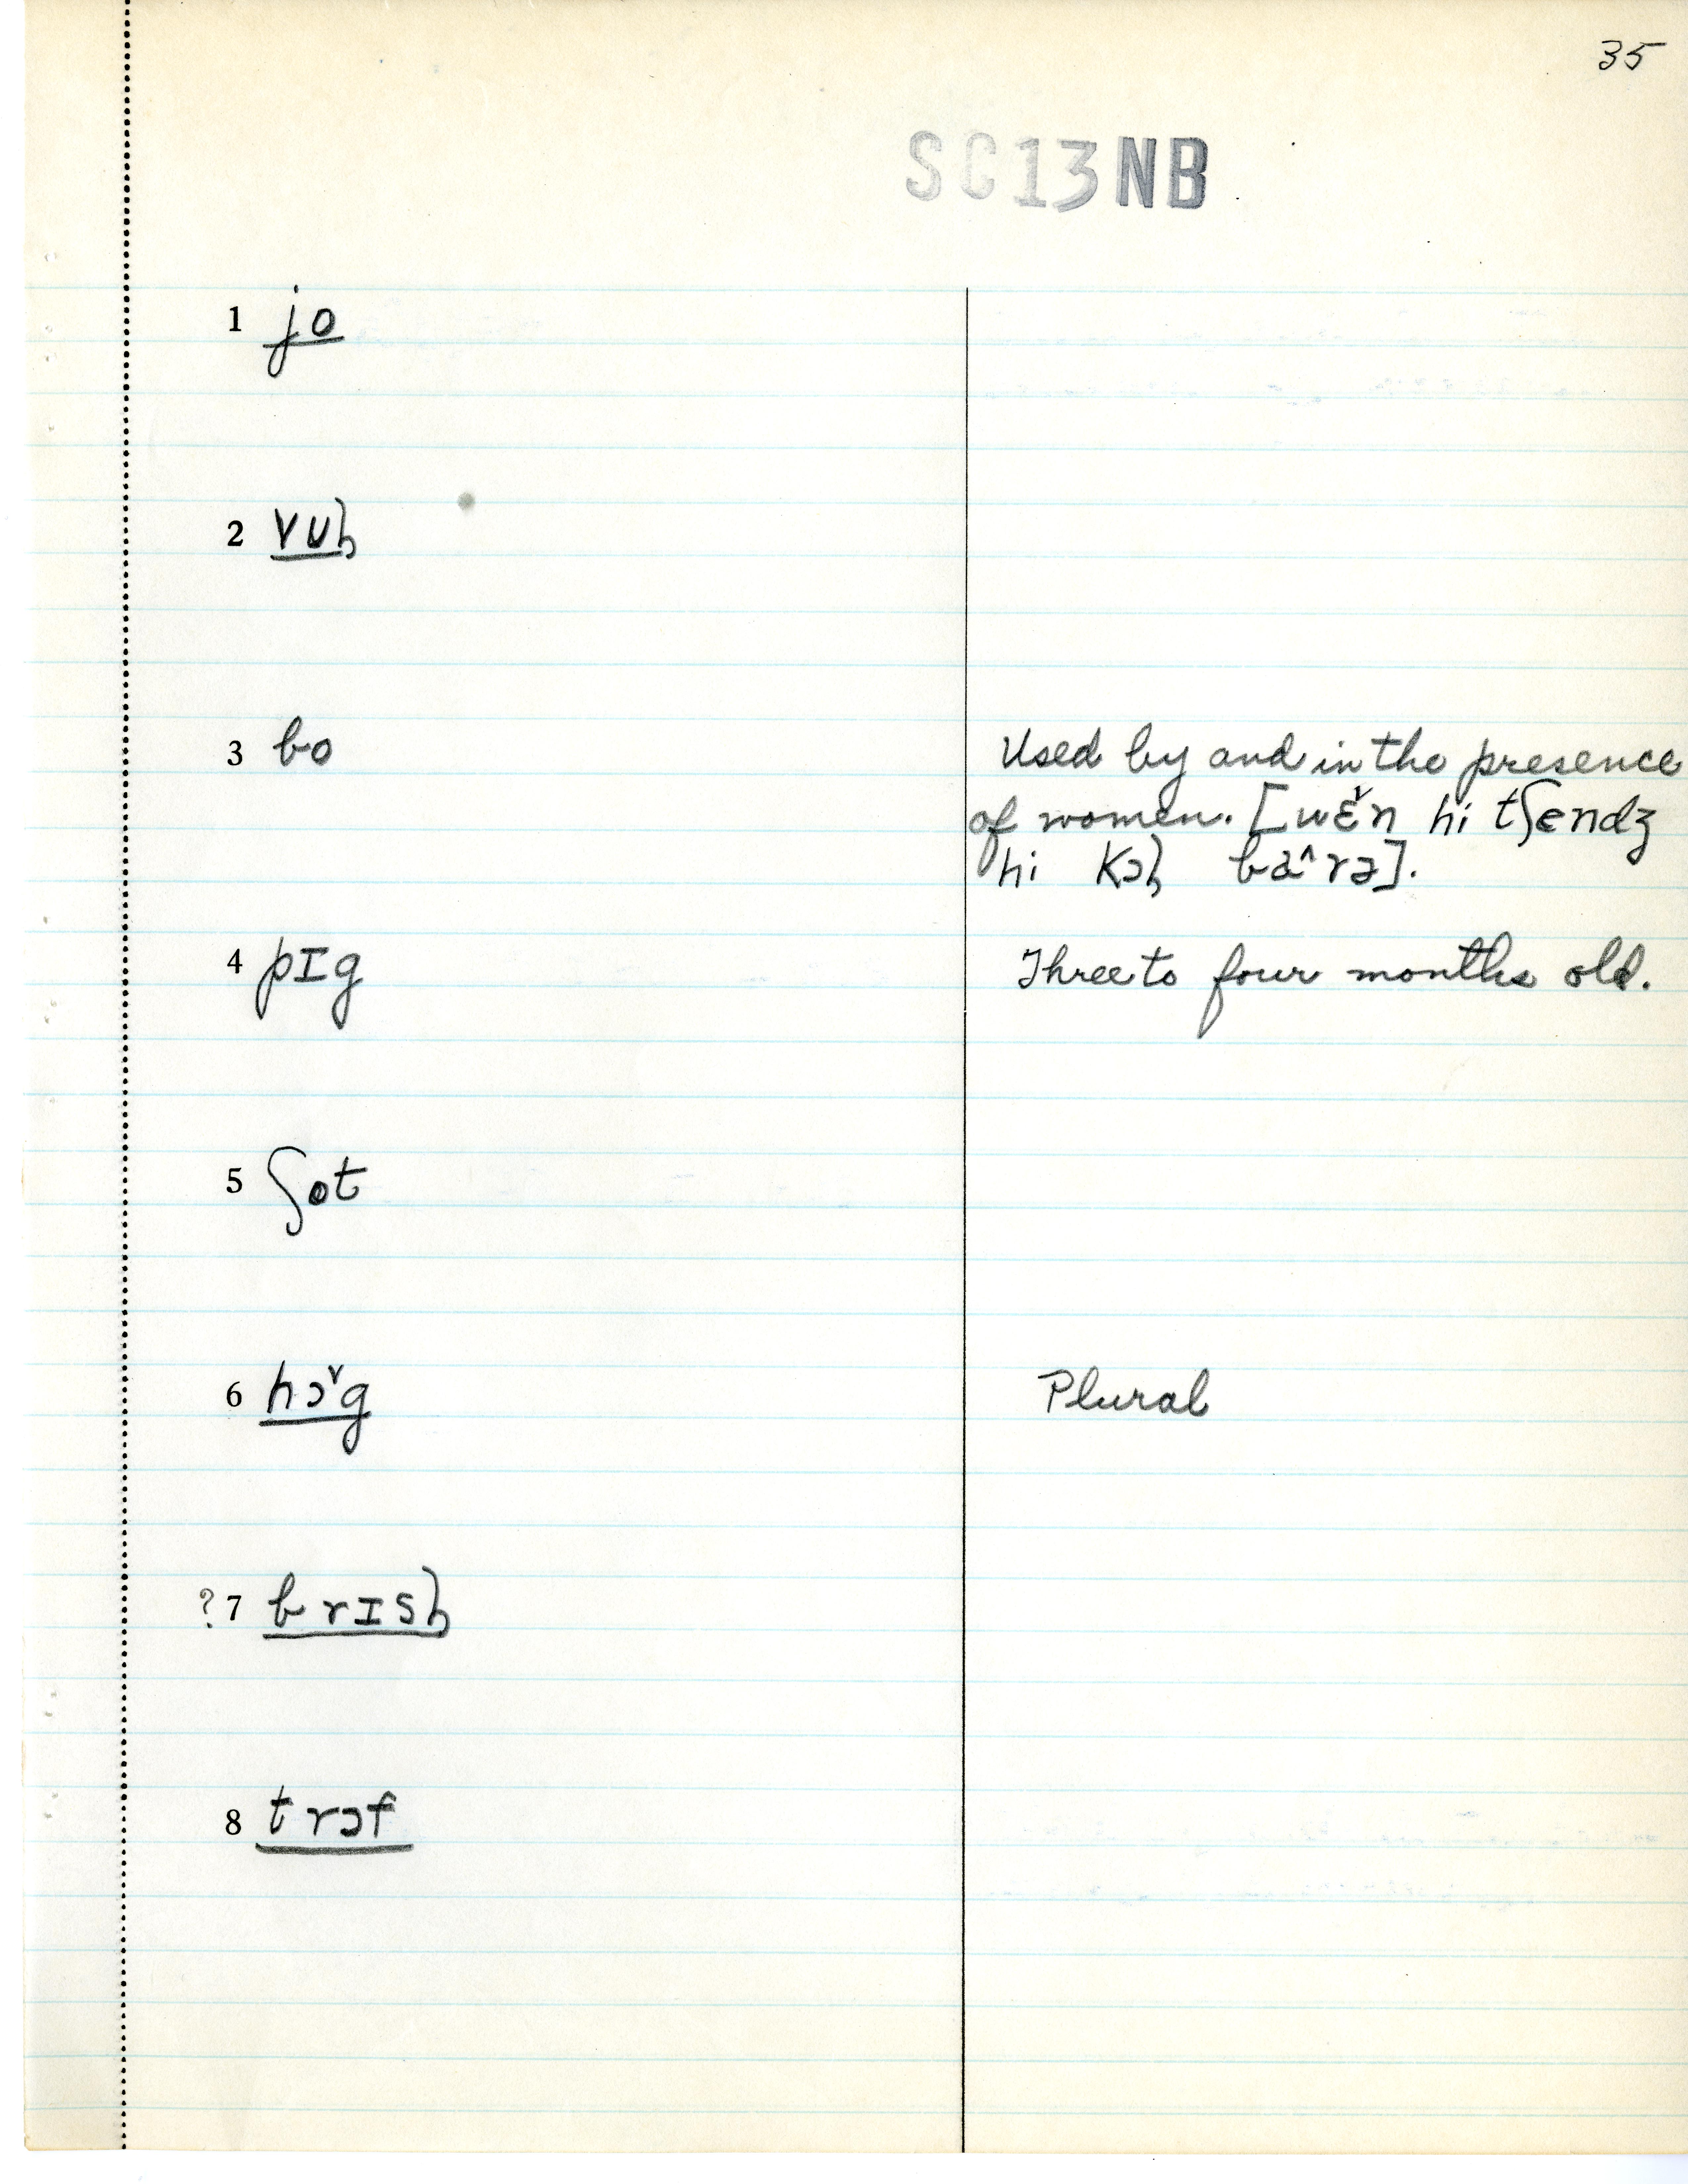 35
SC13NB
1 jo
2 ɤuḥ
3 bo
Used by and in the presence
of women. [wɛ˅n hi tʃendʒ
hi kɔḥ ba^rə].
4 pɪg
Three to four months old.
5 ʃot
6 hɔ˅g
Plural
? 7 brɪsḥ
8 trɔf